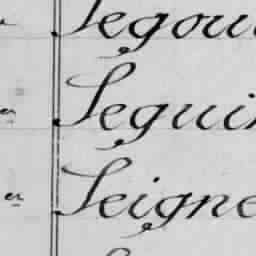 Segou
er Segui
er Seigne